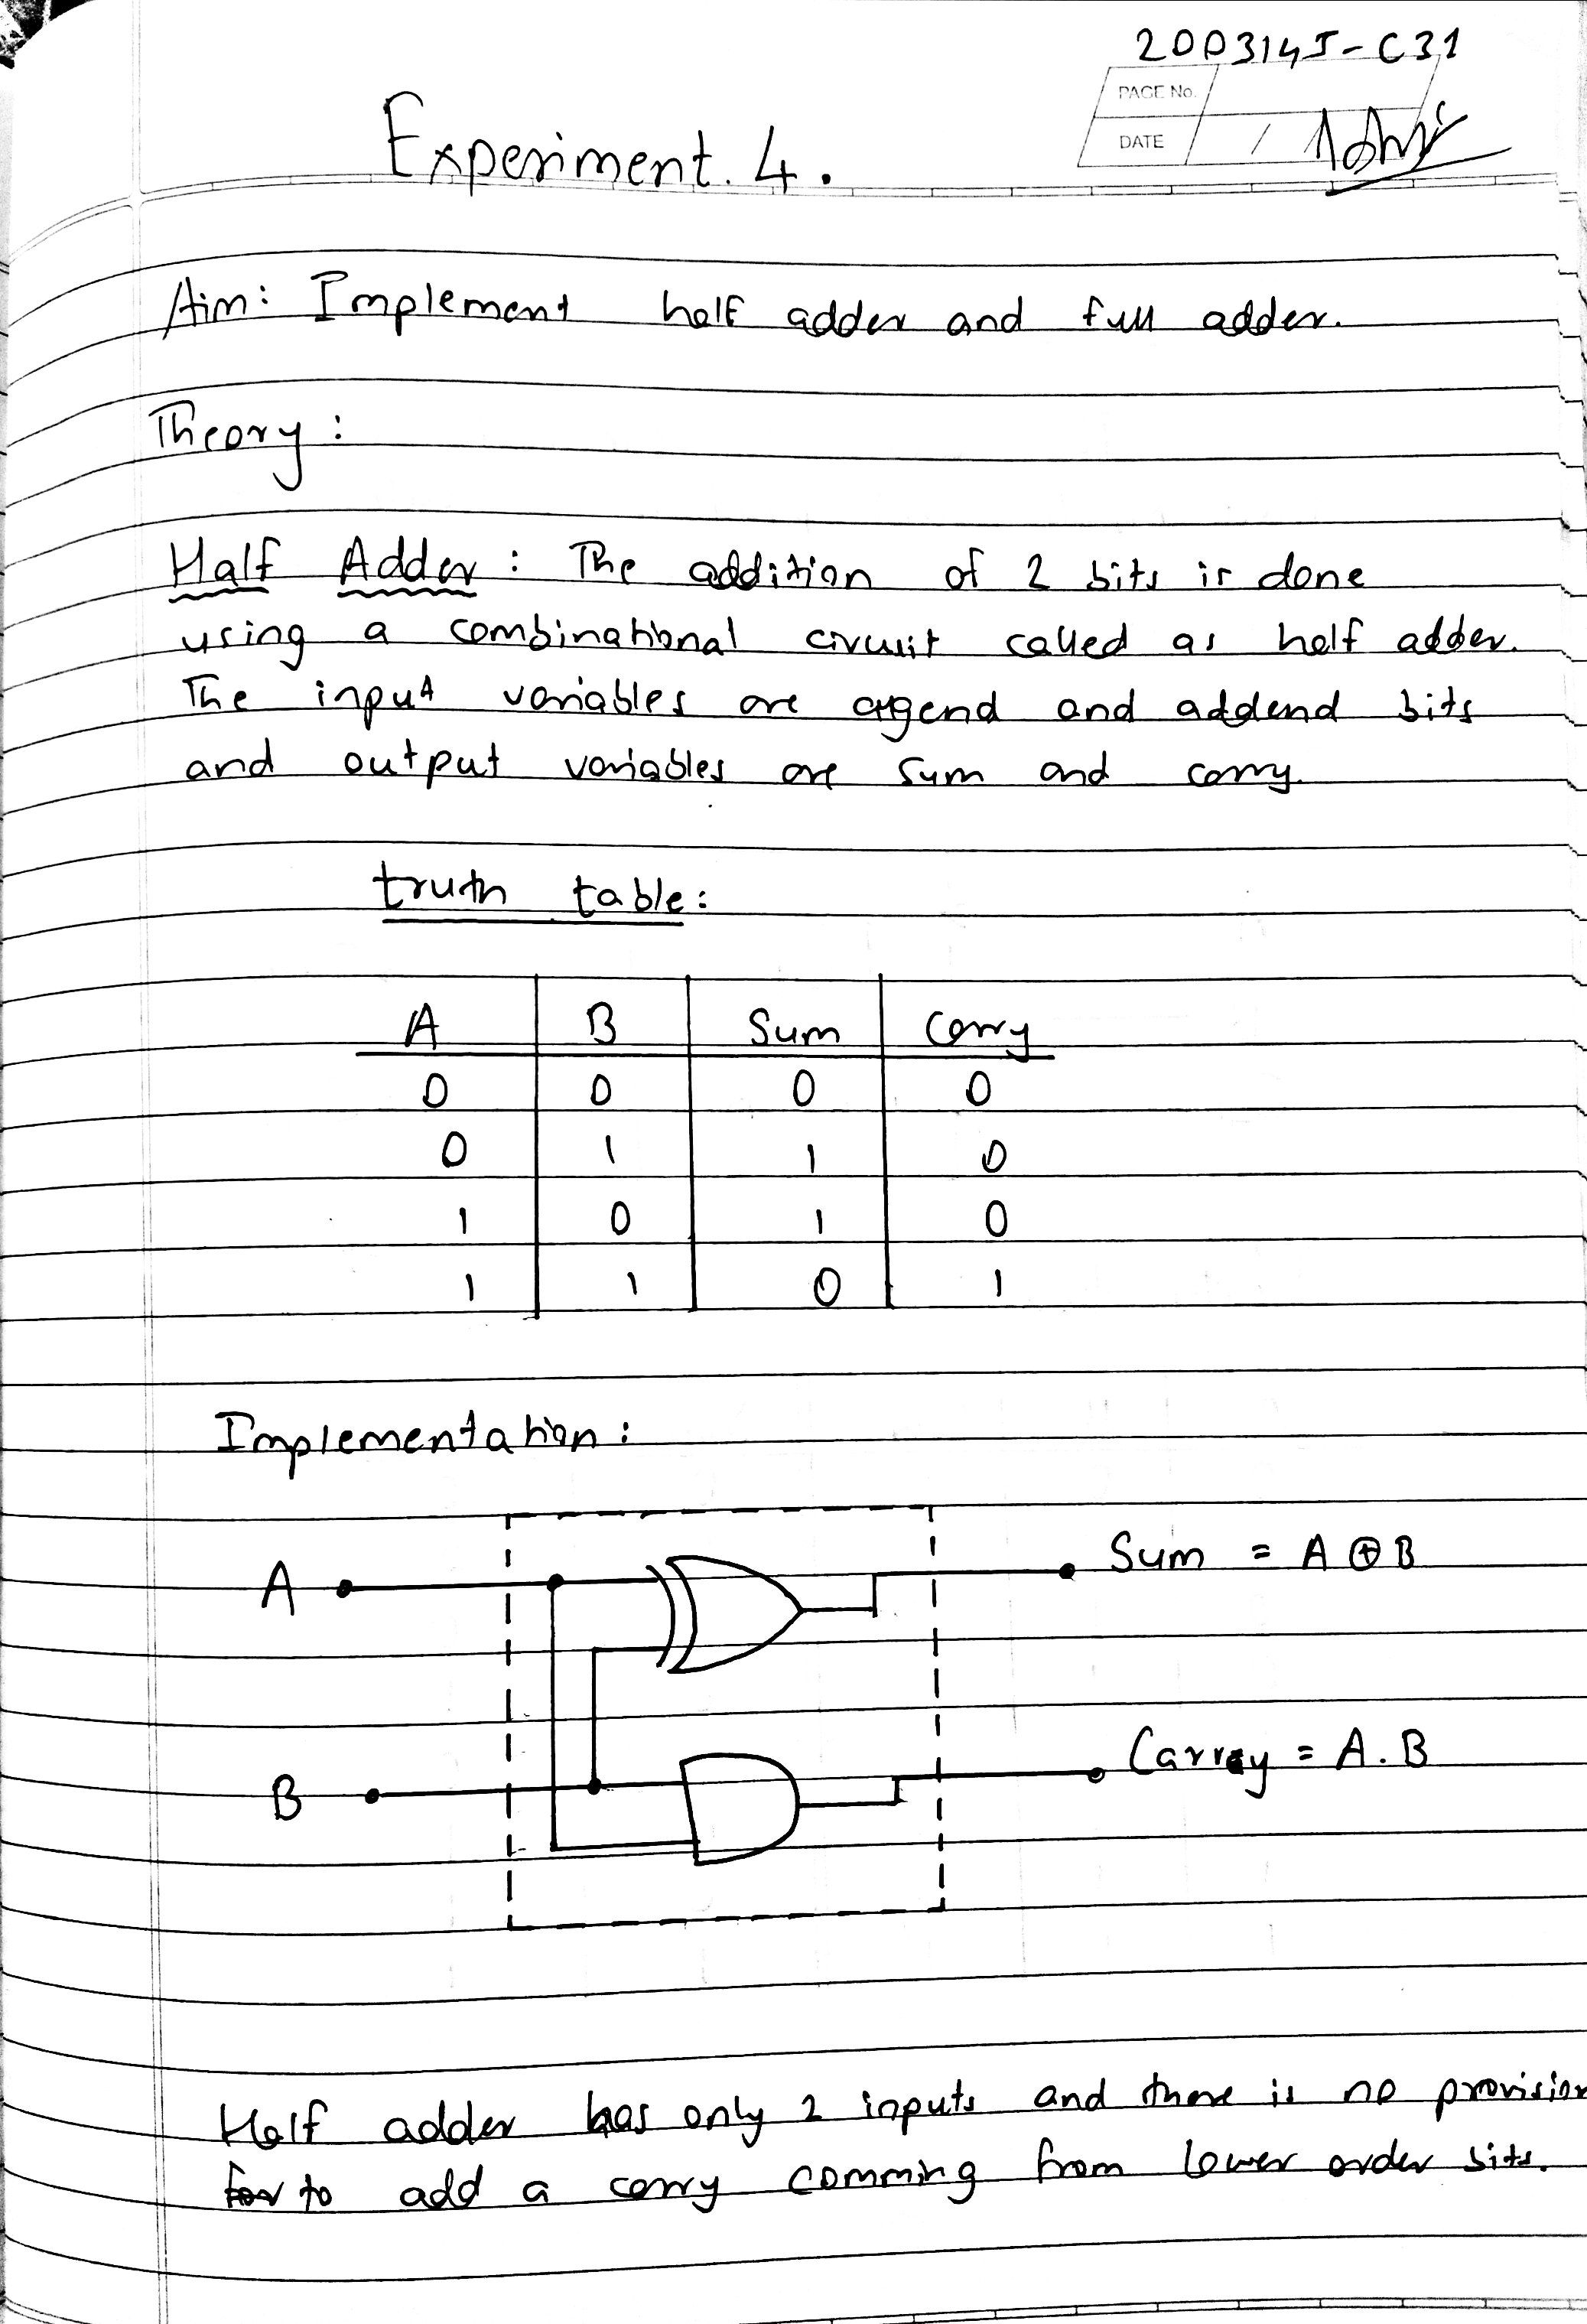 2003145-C31
PAGE No.
DATE /
Experiment. 4.
Aim: Implement half adder and full adder.
Theory:
Half Adder: The addition of 2 bits is done
using a combinational circuit called as half adder.
The input variables are and addend bits
and output variables are sum and carry.
truth table:
A B Sum Carry
0 0 0 0
0 1 1 0
1 0 1 0
1 1 0 1
Implementation:
A Sum = A ⊕ B
B Carry = A . B
Half adder has only 2 inputs and there is no provision
to add a carry comming from lower order bits.